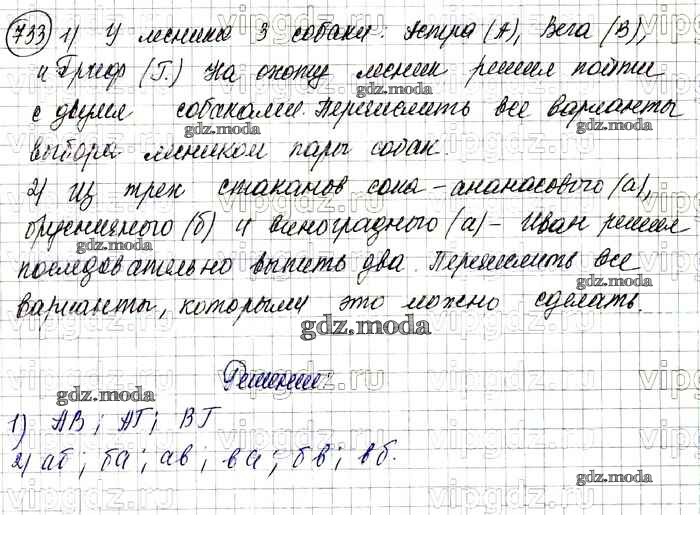 733 1) У лесника 3 собаки: Астра (А), Вега (В),
и Гриф (Г.) На охоту лесник решил пойти
с двумя собаками. Перечислить все варианты
выбора лесником пары собак.
2) Из трех стаканов сока - ананасового (а),
брусничного (б) и виноградного (а) - Иван решил
последовательно выпить два. Перечислить все
варианты, которыми это можно сделать.
gdz.moda
Решение:
1) АВ; АГ; ВГ
2) аб; ба; ав; ва; бв; вб.
vipgdz.ru